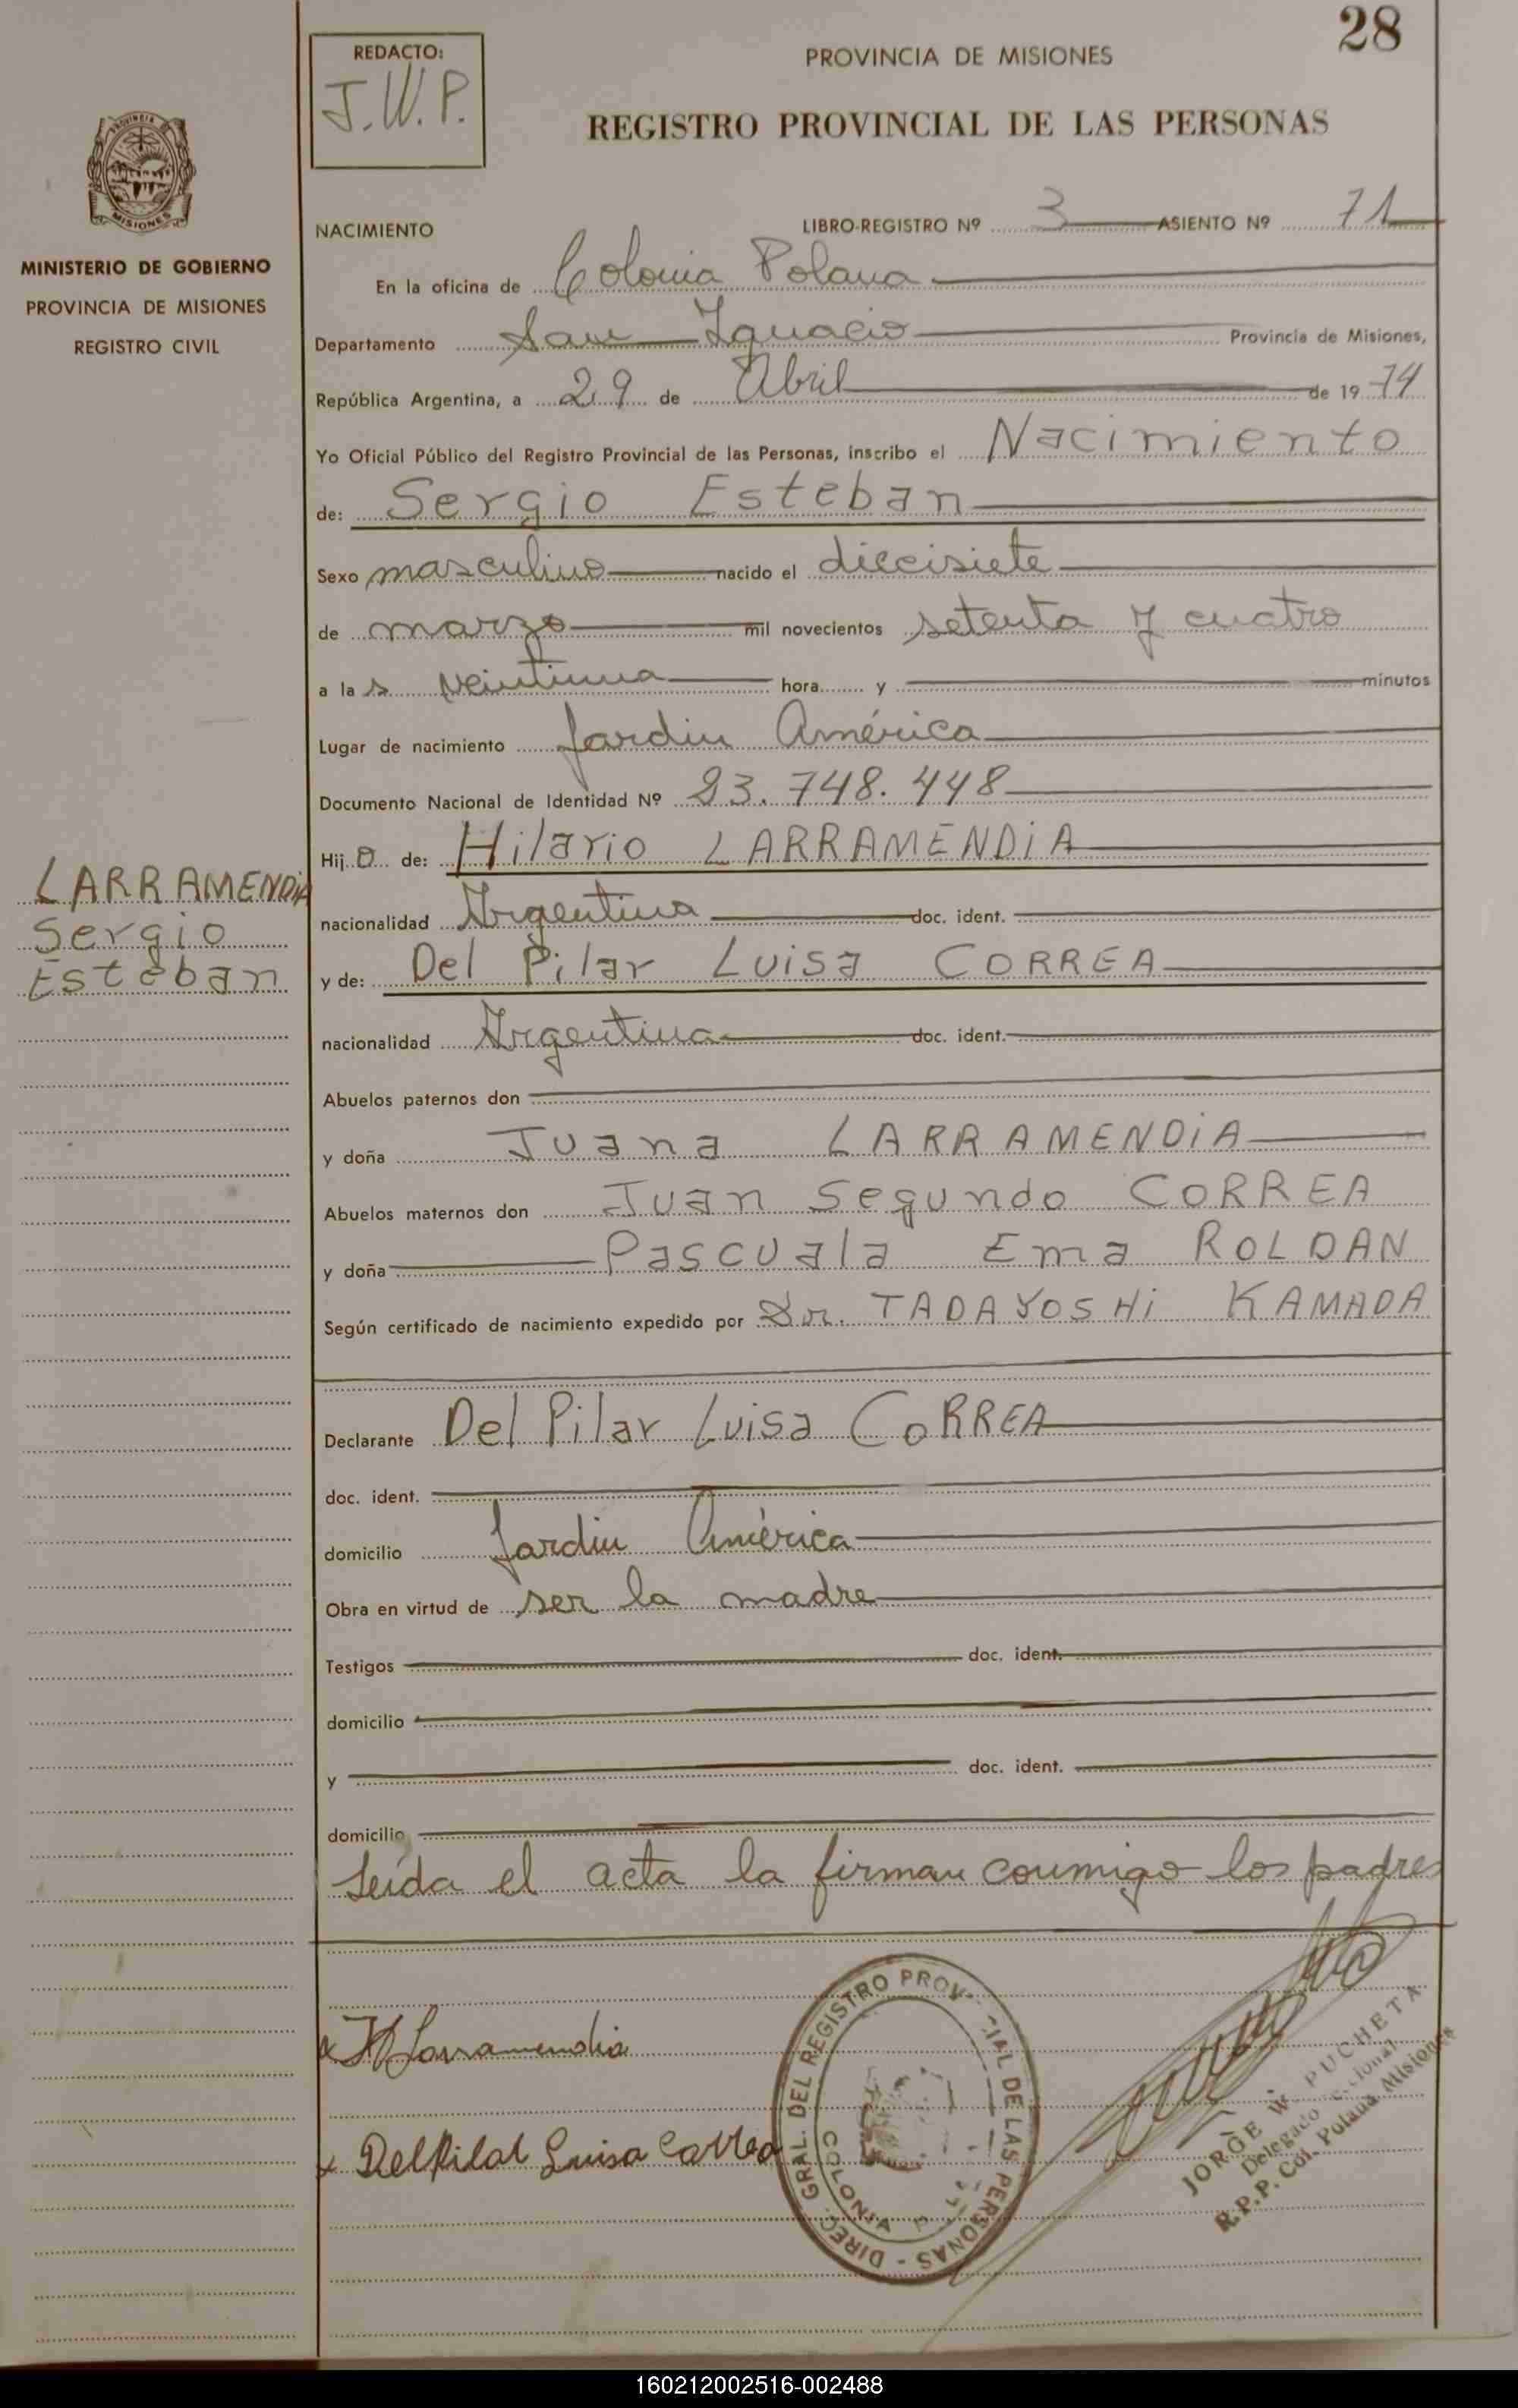 28
REDACTO:
J.W.P.
PROVINCIA DE MISIONES
REGISTRO PROVINCIAL DE LAS PERSONAS
PROVINCIA DE
MISIONES
MINISTERIO DE GOBIERNO
PROVINCIA DE MISIONES
REGISTRO CIVIL
NACIMIENTO LIBRO-REGISTRO Nº 3 ASIENTO Nº 71
En la oficina de Colonia Polana
Departamento San Ignacio Provincia de Misiones,
República Argentina, a 29 de Abril de 1974
Yo Oficial Público del Registro Provincial de las Personas, inscribo el Nacimiento
de: Sergio Esteban
Sexo masculino nacido el diecisiete
de marzo mil novecientos setenta y cuatro
a las veintiuna hora y minutos
Lugar de nacimiento Jardin América
Documento Nacional de Identidad Nº 23.748.448
Hijo de: Hilario LARRAMENDIA
LARRAMENDIA
Sergio
Esteban
nacionalidad Argentina doc. ident.
y de: Del Pilar Luisa CORREA
nacionalidad Argentina doc. ident.
Abuelos paternos don
y doña Juana LARRAMENDIA
Abuelos maternos don Juan Segundo CORREA
y doña Pascuala Ema ROLDAN
Según certificado de nacimiento expedido por Dr. TADAYOSHI KAMADA
Declarante Del Pilar Luisa CORREA
doc. ident.
domicilio Jardin América
Obra en virtud de ser la madre
Testigos doc. ident.
domicilio
y doc. ident.
domicilio
Leída el acta la firman conmigo los padres
x H Larramendia
x Del Pilar Luisa Correa
DIREC. GRAL. DEL REGISTRO PROVINCIAL DE LAS PERSONAS -
COLONIA
JORGE W. PUCHETA
Delegado
R.P.P. Col. Polana Misiones
160212002516-002488